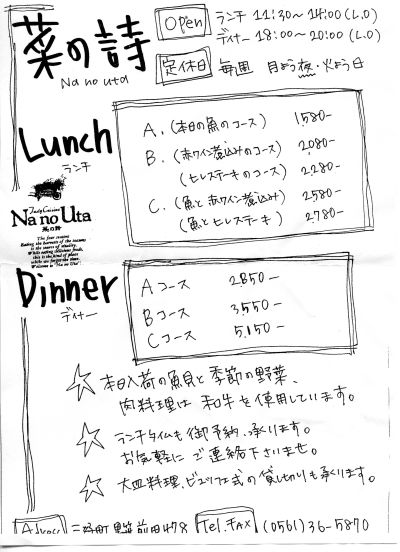 菜の詩
Na no uta
Open ランチ 11:30~14:00(L.O)
ディナー 18:00~20:00(L.O)
定休日 毎週 月よう夜・火よう日
Lunch
ランチ
A. (本日の魚のコース) 1,580-
B. (赤ワイン煮込みのコース) 2,080-
(ヒレステーキのコース) 2,280-
C. (魚と赤ワイン煮込み) 2,580-
(魚とヒレステーキ) 2,780-
Tasty Cuisine
Na no Uta
菜の詩
The four seasons
Eating the harvests of the seasons
is the source of vitality.
While eating delicious foods,
this is the kind of place
where we forget the time.
Welcome to "Na no Uta"
Dinner
ディナー
Aコース 2,850-
Bコース 3,550-
Cコース 5,150-
☆ 本日入荷の魚貝と季節の野菜、
肉料理は和牛を使用しています。
☆ ランチタイムも御予約、承ります。
お気軽にご連絡下さいませ。
☆ 大皿料理、ビュッフェ式の貸し切りも承ります。
Address 三好町 前田478 Tel.FAX (0561)36-5870